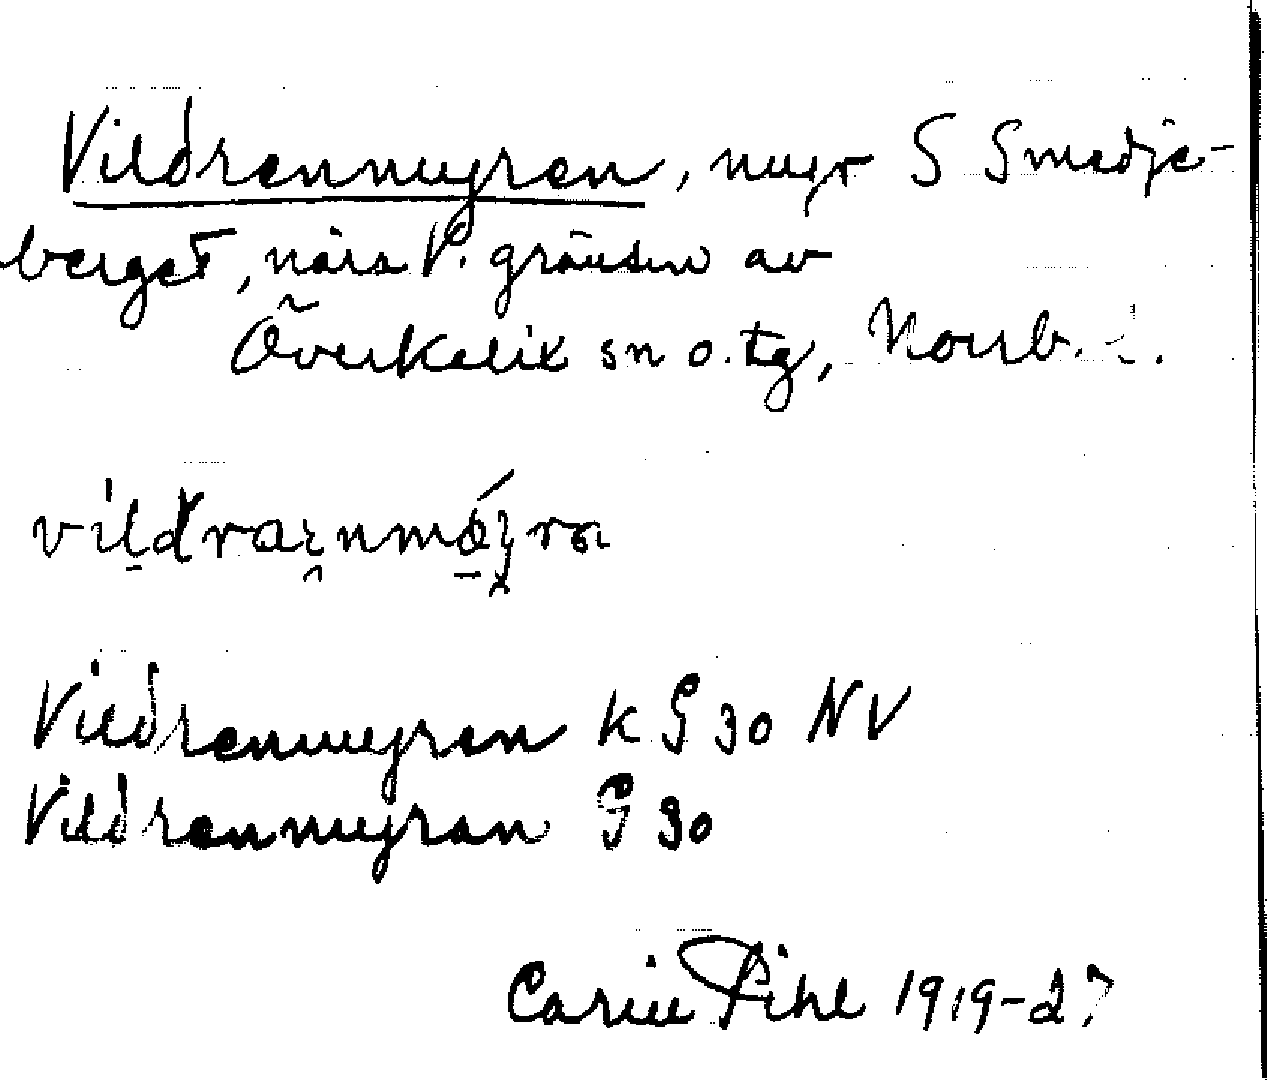 Vildrenmyren, myr S Smedje-
berget, nära V. gränsen av
Överkalix sn o. tg, Norrb. l.
Vildrenmyren k G 30 NV
Vildrenmyran G 30
Carin Pihl 1919-27